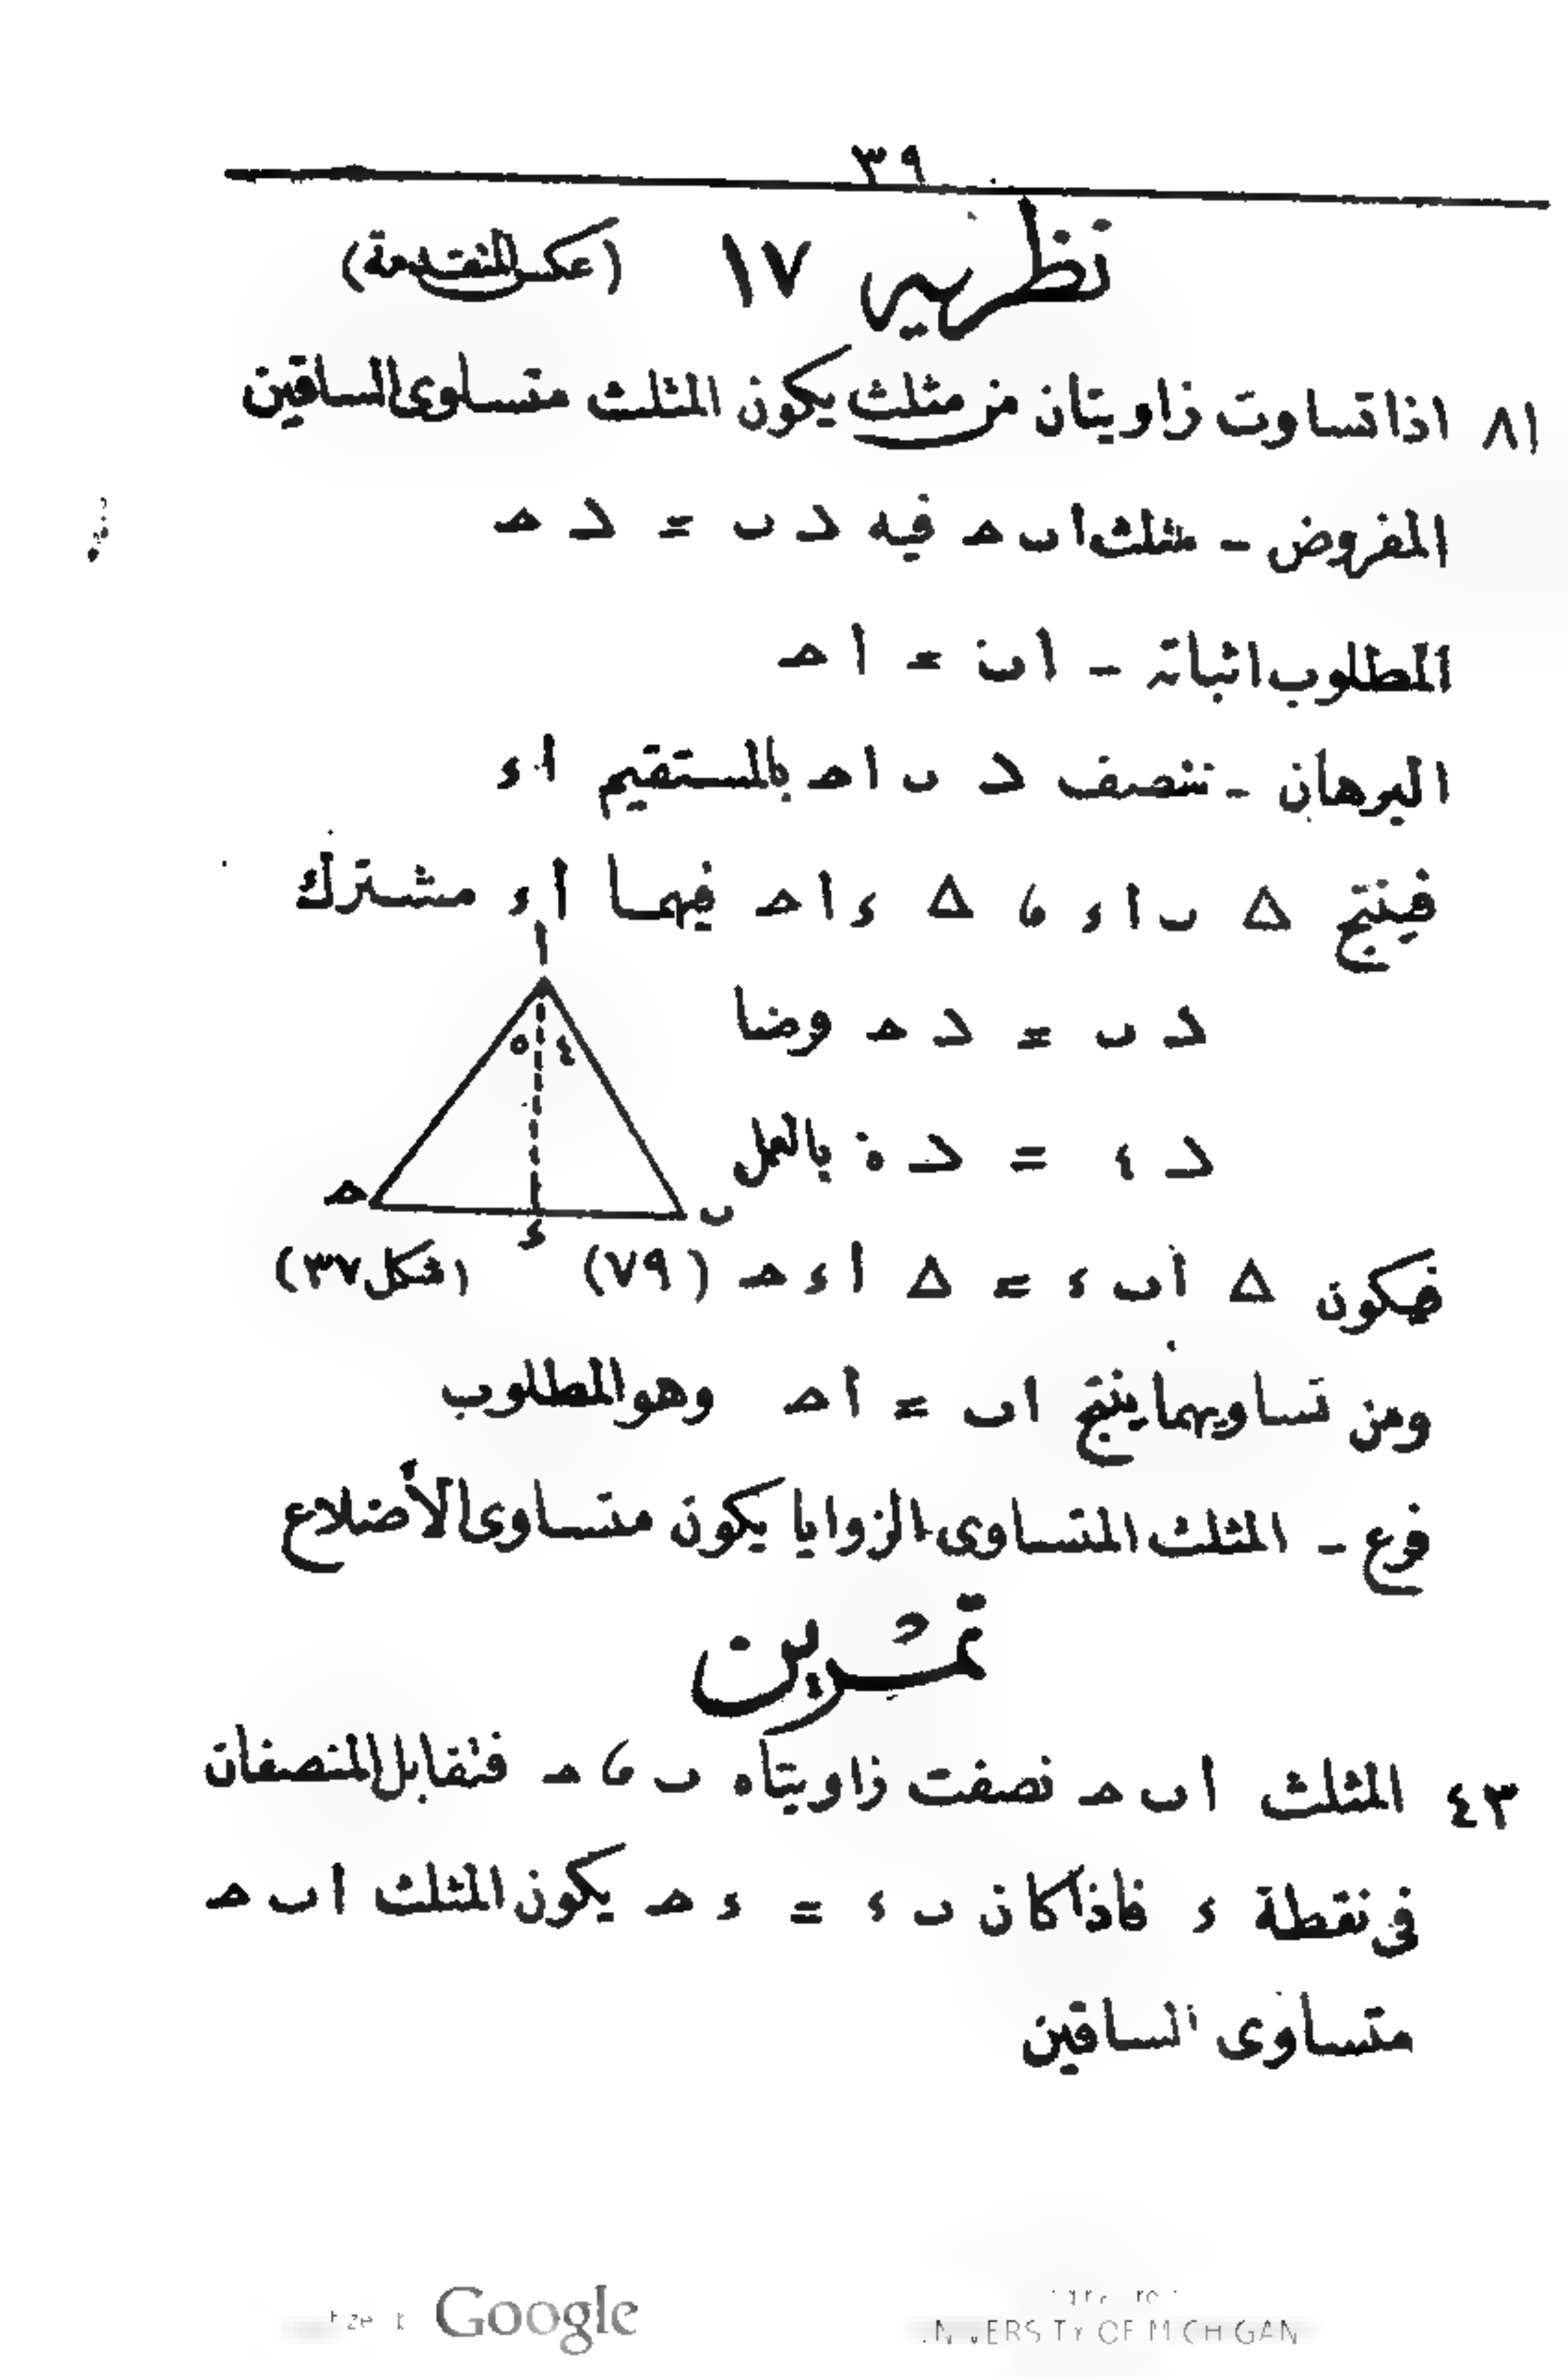 ٣٩
نظريه ١٧ (عكس المتقدمة)
٨١ اذا تساوت زاويتان من مثلث يكون المثلث متساوى الساقين
المفروض - مثلث ا ب ح فيه د ب = د ح
المطلوب اثباته - ا ب = ا ح
البرهان - ننصف د ب ا ح بالمستقيم ا ء
فينتج △ ب ا ء ، △ ء ا ح فيهما ا ء مشترك
ا
د ب = د ح وضا
٥ ٤
د ٤ = د ٥ بالعمل
ح ب
ء
فيكون △ ا ب ء = △ ا ء ح (٧٩) (شكل ٣٧)
ومن تساويهما ينتج ا ب = ا ح وهو المطلوب
فرع - المثلث المتساوى الزوايا يكون متساوى الأضلاع
تمرين
٤٣ المثلث ا ب ح نصفت زاويتاه ب ، ح فتقابل المنصفان
فى نقطة ء فاذا كان ب ء = ء ح يكون المثلث ا ب ح
متساوى الساقين
Google
UNIVERSITY OF MICHIGAN